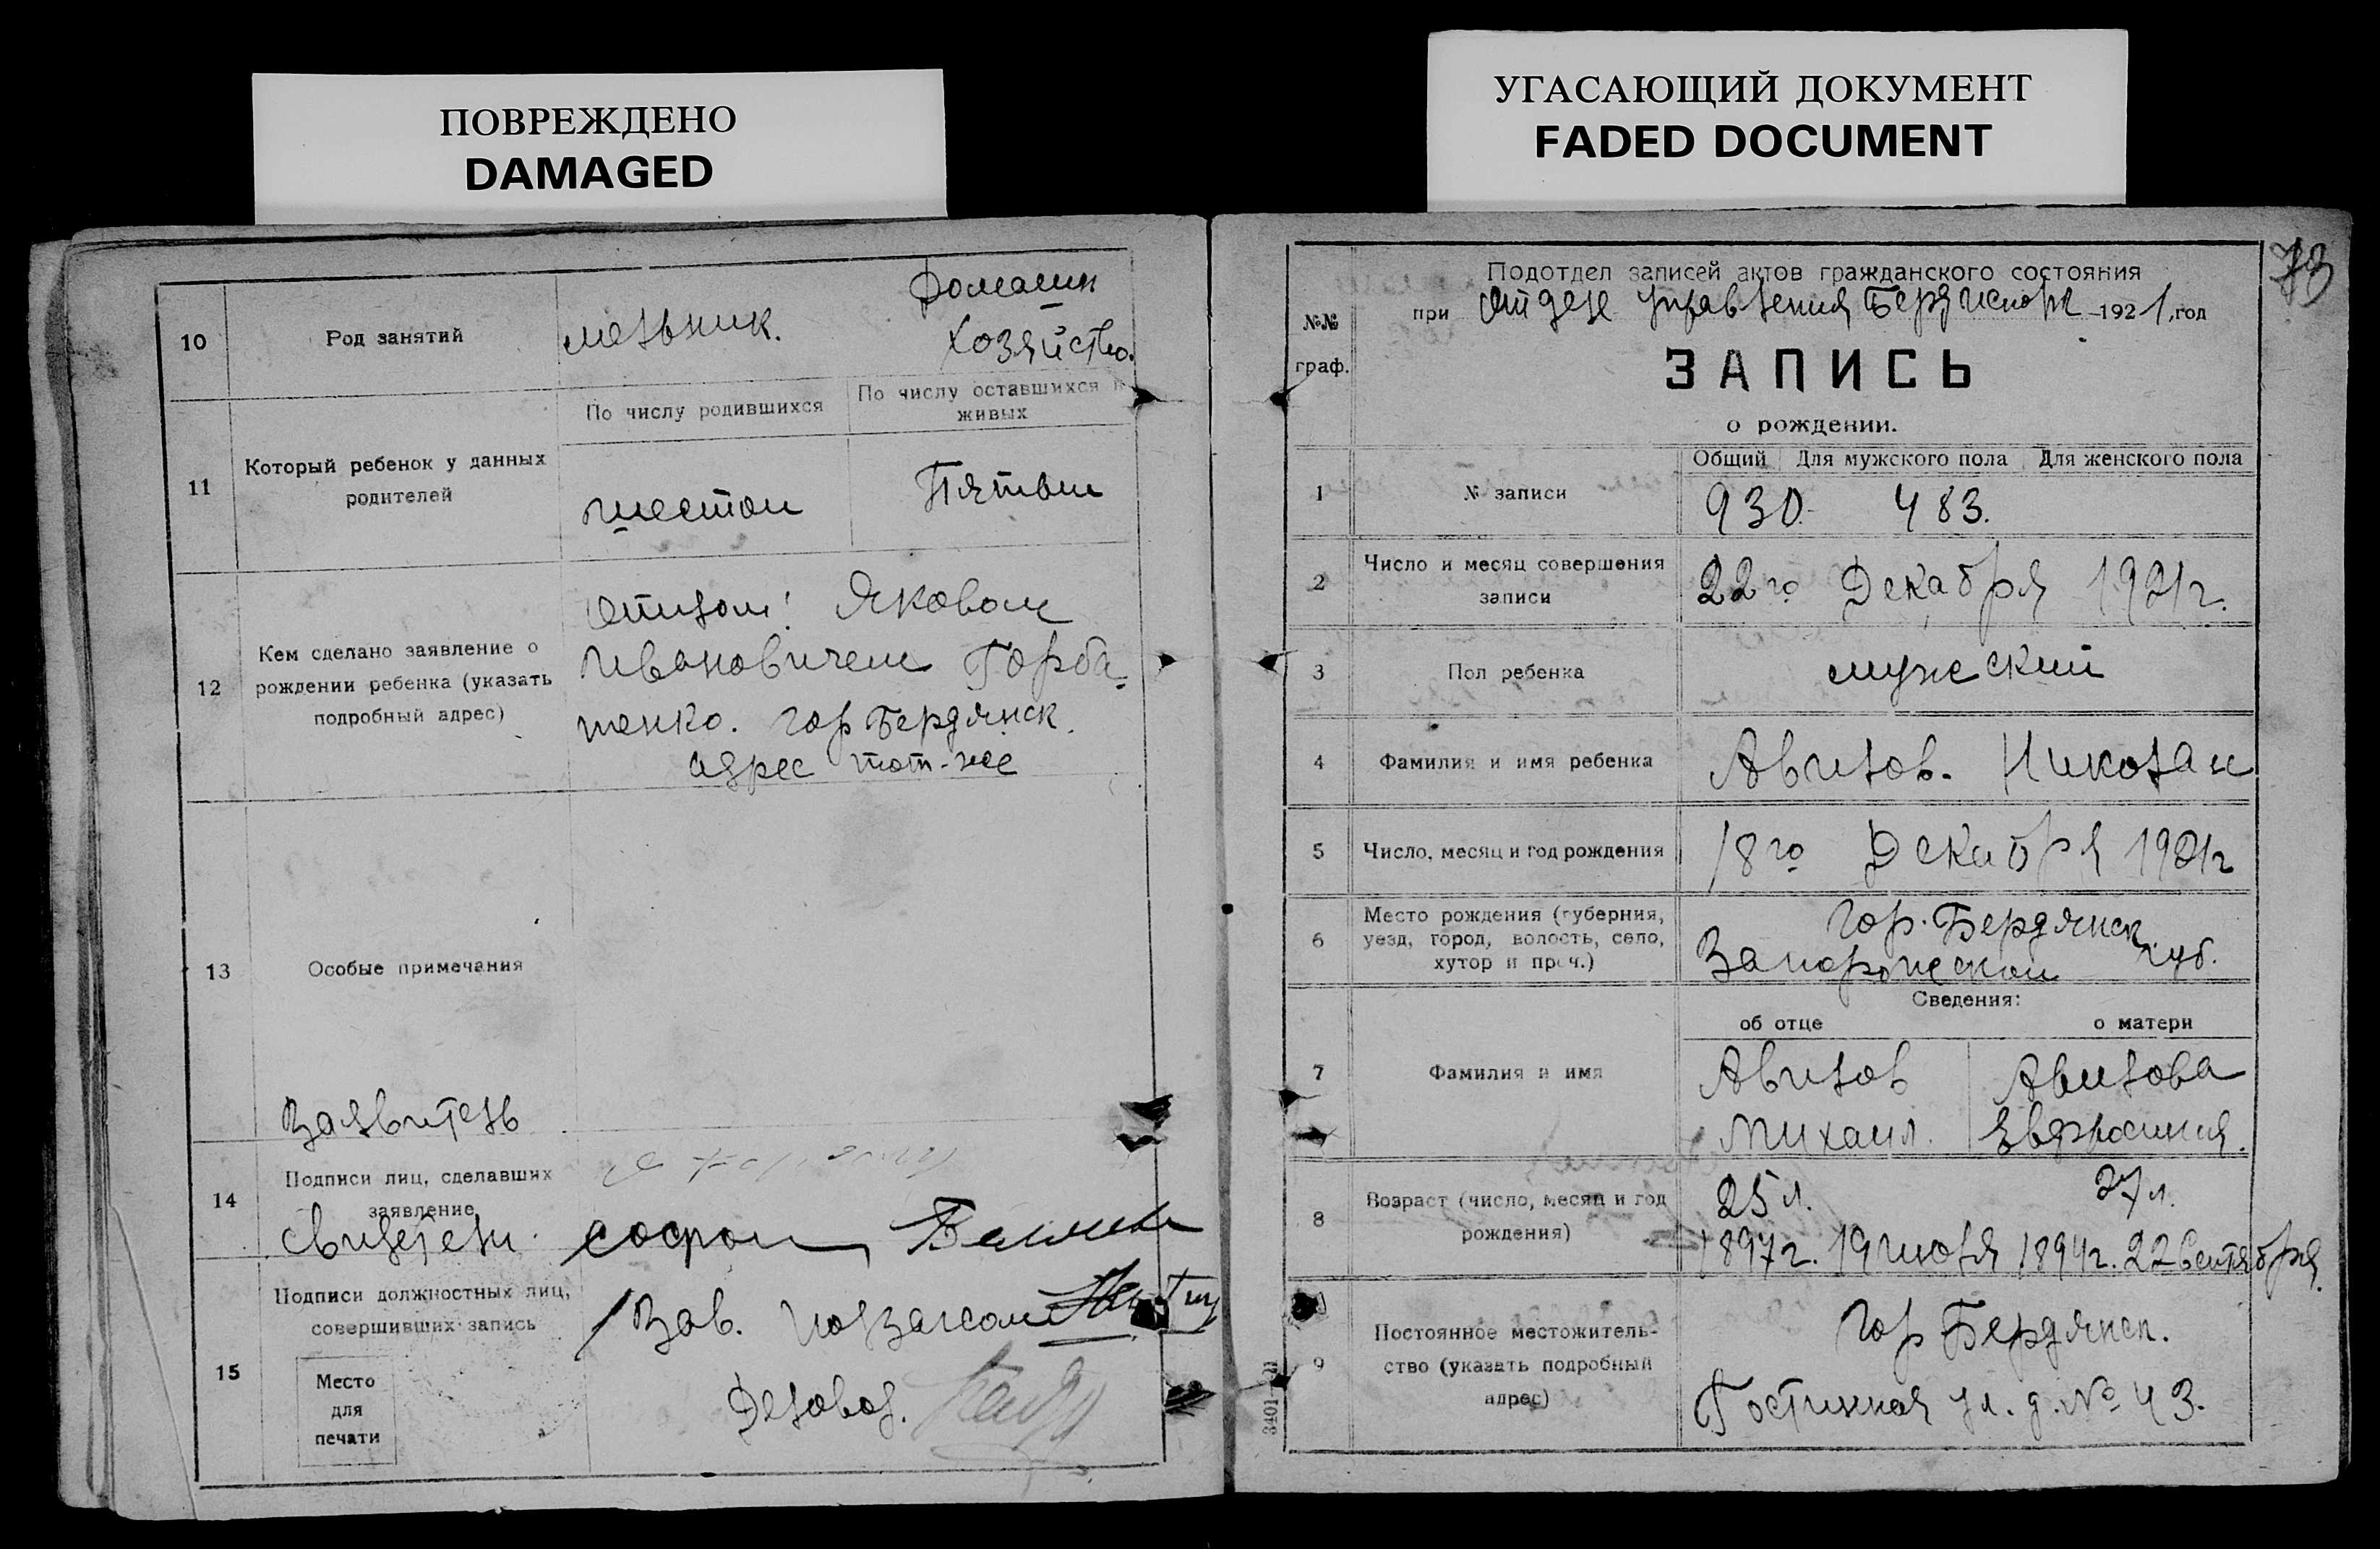 ПОВРЕЖДЕНО
DAMAGED
УГАСАЮЩИЙ ДОКУМЕНТ
FADED DOCUMENT
10
Род занятий
мельник.
Домашн
хозяйство.
11
Который ребенок у данных
родителей
По числу родившихся
По числу оставшихся в
живых
шестой
Пятый
12
Кем сделано заявление о
рождении ребенка (указать
подробный адрес)
отцом: Яковом
Ивановичем Горба-
тенко. гор Бердянск.
адрес тот-же
13
Особые примечания
Заявитель
14
Подписи лиц, сделавших
заявление
Свидетели.
15
Подписи должностных лиц,
совершивших запись
Зав. подзагсом
Место
для
печати
Деловод.
73
№№
граф.
Подотдел записей актов гражданского состояния
при Отделе Управления 1921, год
ЗАПИСЬ
о рождении.
1
№ записи
Общий Для мужского пола Для женского пола
930. 483.
2
Число и месяц совершения
записи
22го Декабря 1921г.
3
Пол ребенка
мужеский
4
Фамилия и имя ребенка
Авилов. Николай
5
Число, месяц и год рождения
18го Декабря 1921г
6
Место рождения (губерния,
уезд, город, волость, село,
хутор и проч.)
гор. Бердянск
Запорожской губ.
Сведения:
об отце
о матери
7
Фамилия и имя
Авилов
Михаил.
Авилова
Евфросиния.
8
Возраст (число, месяц и год
рождения)
25 л.
27 л.
1897г. 19 июля 1894г. 22 Сентября
9
Постоянное местожитель-
ство (указать подробный
адрес)
гор Бердянск.
Гостинная ул. д. № 43.